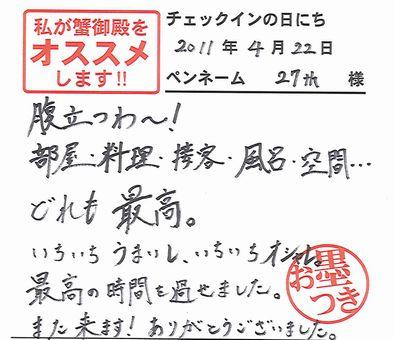 私が蟹御殿を
オススメ
します!!
チェックインの日にち
2011 年 4月 22日
ペンネーム 27th 様
腹立つわ〜!
部屋・料理・接客・風呂・空間…
どれも 最高。
いちいち うまいし、いちいち オシャレ。
最高の時間を過せました。
また来ます! ありがとうございました。
お墨
つき